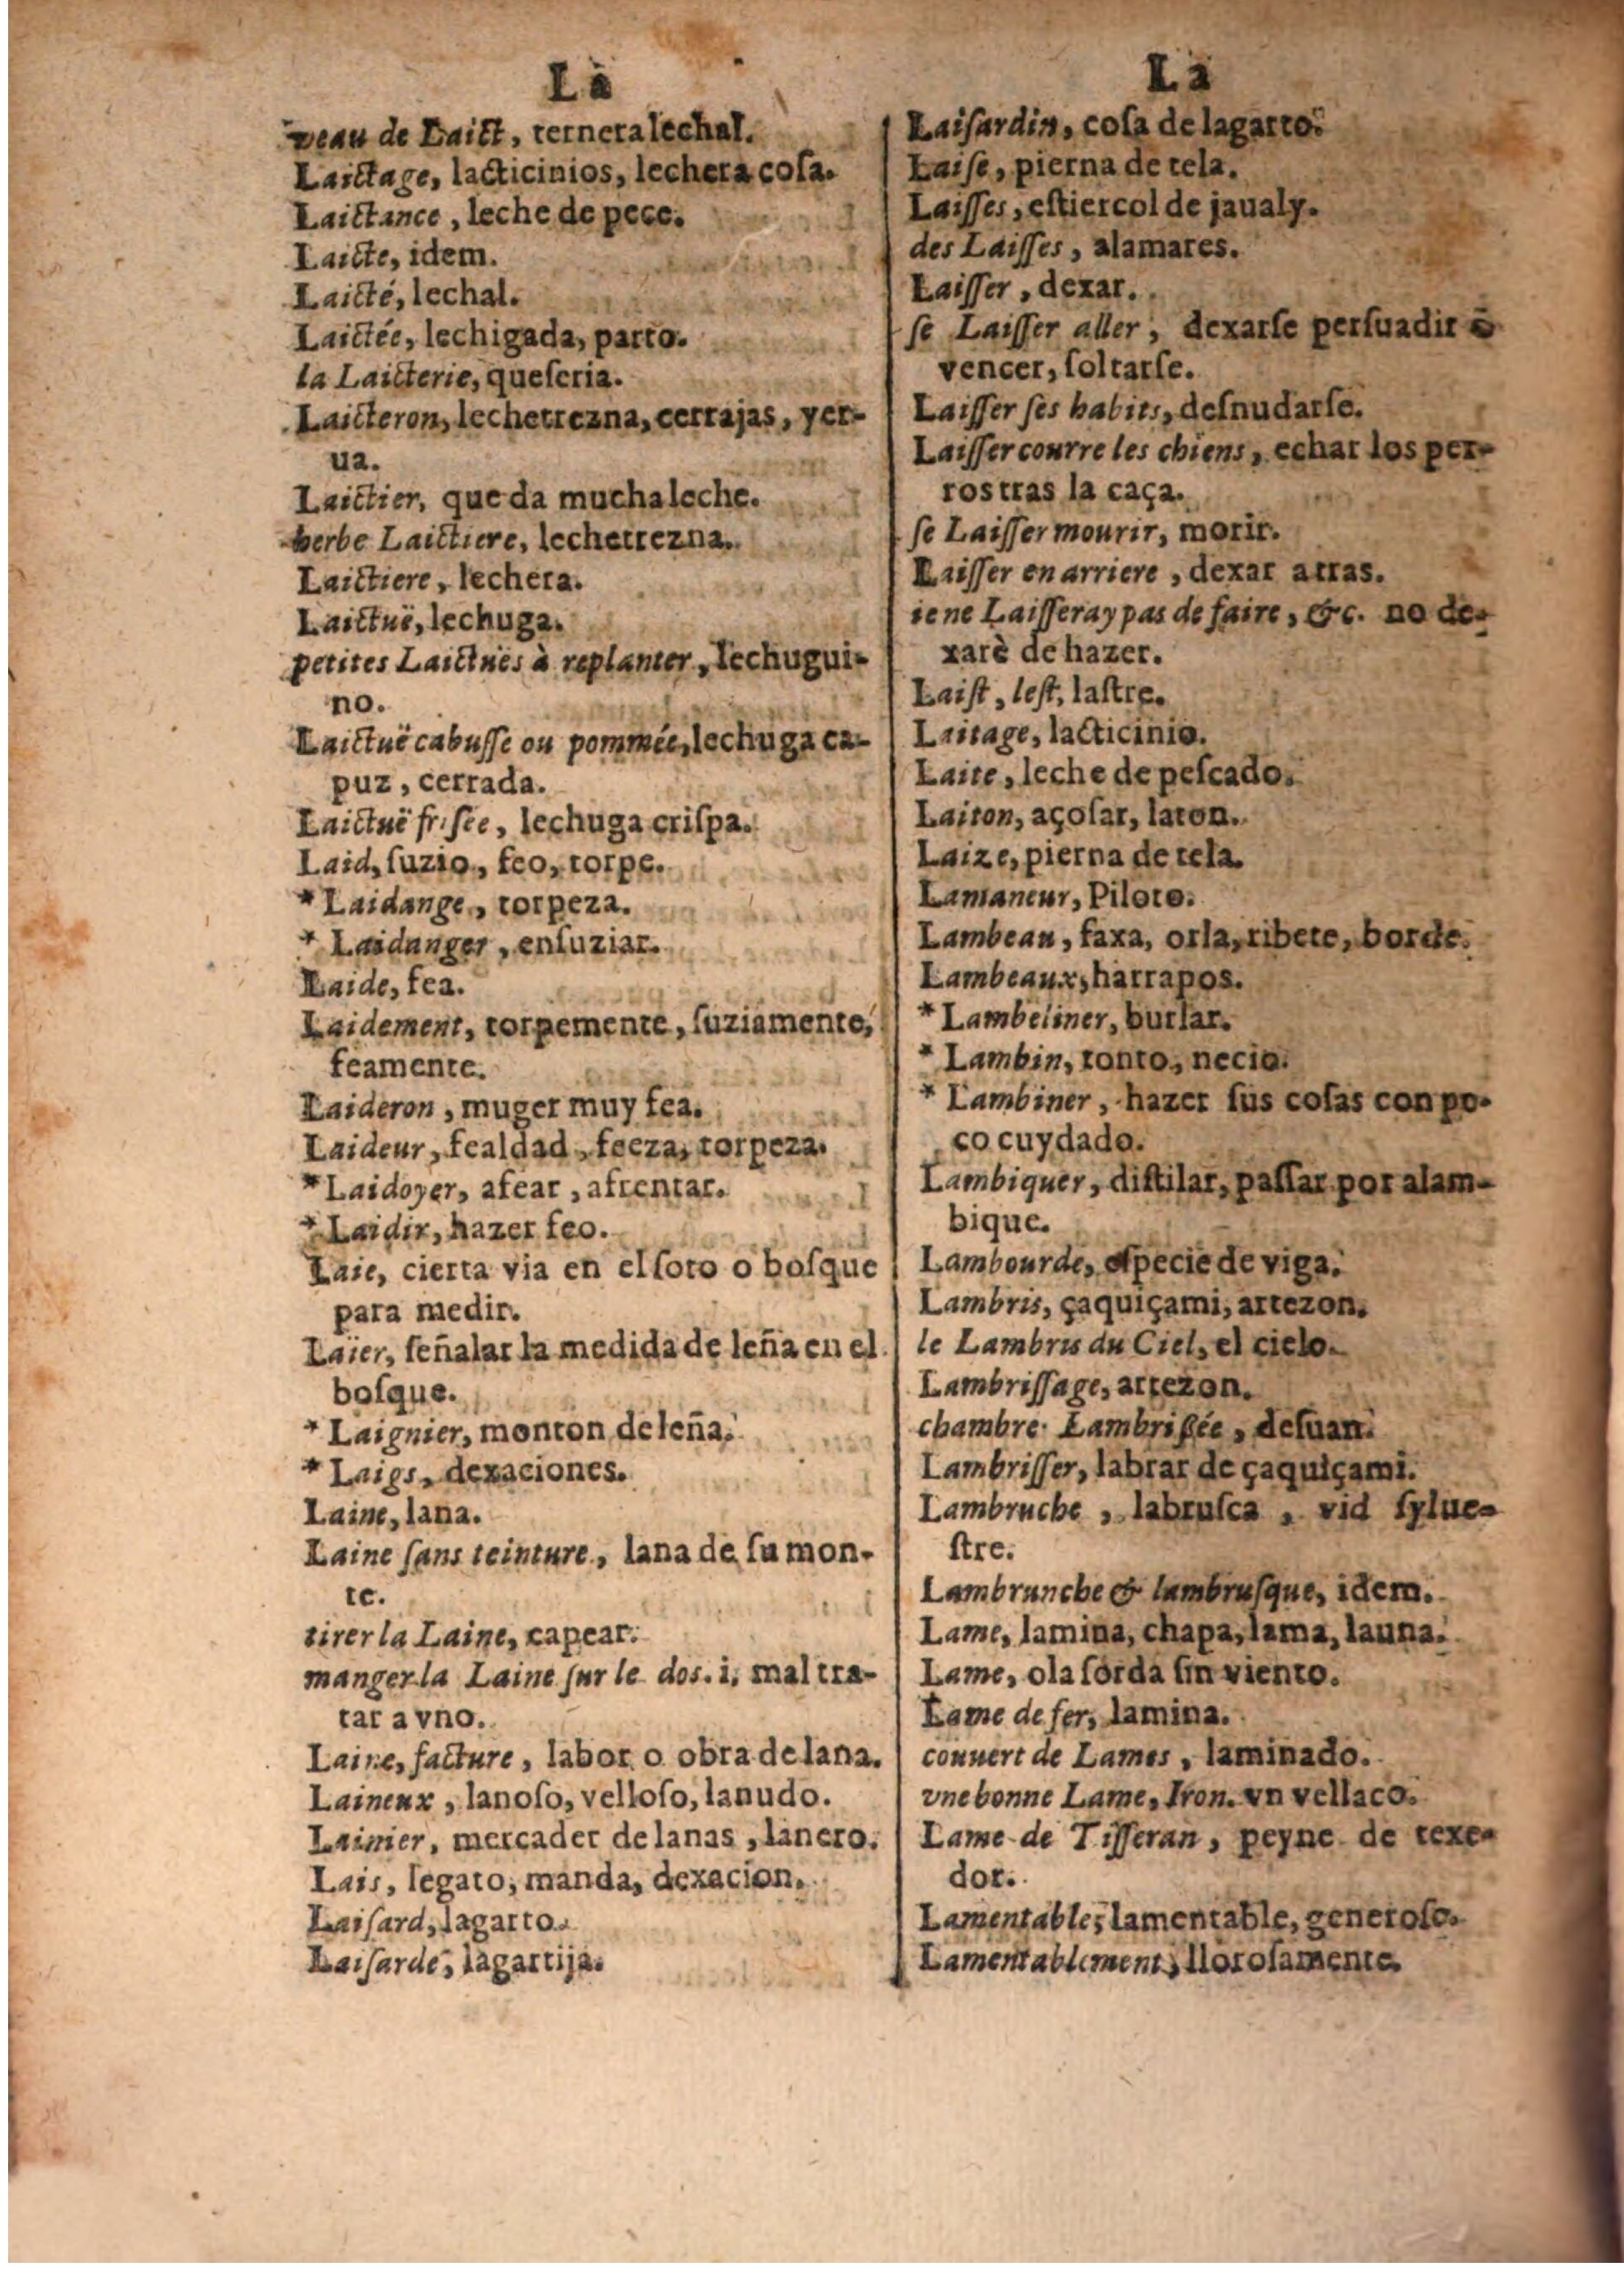 La
veau de Laict, ternera lechal.
Laictage, lacticinios, lechera cosa.
Laictance, leche de pece.
Laicte, idem.
Laicté, lechal.
Laictée, lechigada, parto.
la Laicterie, queseria.
Laicteron, lechetrezna, cerrajas, yer-
ua.
Laictier, que da mucha leche.
herbe Laictiere, lechetrezna.
Laictiere, lechera.
Laictuë, lechuga.
petites Laictuës à replanter, lechugui-
no.
Laictuë cabusse ou pommée, lechuga ca-
puz, cerrada.
Laictuë frisée, lechuga crispa.
Laid, suzio, feo, torpe.
*Laidange, torpeza.
* Laidanger, ensuziar.
Laide, fea.
Laidement, torpemente, suziamente,
feamente.
Laideron, muger muy fea.
Laideur, fealdad, feeza, torpeza.
*Laidoyer, afear, afrentar.
*Laidir, hazer feo.
Laie, cierta via en el soto o bosque
para medir.
Laier, señalar la medida de leña en el
bosque.
* Laignier, monton de leña.
*Laigs, dexaciones.
Laine, lana.
Laine sans teinture, lana de su mon-
te.
tirer la Laine, capear.
manger la Laine sur le dos. i, mal tra-
tar a vno.
Laine, facture, labor o obra de lana.
Laineux, lanoso, velloso, lanudo.
Lainier, mercader de lanas, lanero.
Lais, legato, manda, dexacion.
Laisard, lagarto.
Laisarde, lagartija.
La
Laisardin, cosa de lagarto.
Laise, pierna de tela.
Laisses, estiercol de jaualy.
des Laisses, alamares.
Laisser, dexar.
se Laisser aller, dexarse persuadir ò
vencer, soltarse.
Laisser ses habits, desnudarse.
Laisser courre les chiens, echar los per-
ros tras la caça.
se Laisser mourir, morir.
Laisser en arriere, dexar atras.
ie ne Laisseray pas de faire, &c. no de-
xarè de hazer.
Laist, lest, lastre.
Laitage, lacticinio.
Laite, leche de pescado.
Laiton, açofar, laton.
Laize, pierna de tela.
Lamaneur, Piloto.
Lambeau, faxa, orla, ribete, borde.
Lambeaux, harrapos.
*Lambeliner, burlar.
* Lambin, tonto, necio.
* Lambiner, hazer sus cosas con po-
co cuydado.
Lambiquer, distilar, passar por alam-
bique.
Lambourde, especie de viga.
Lambris, çaquiçami, artezon.
le Lambris du Ciel, el cielo.
Lambrissage, artezon.
chambre Lambrißée, desuan.
Lambrisser, labrar de çaquiçami.
Lambruche, labrusca, vid sylue-
stre.
Lambrunche & lambrusque, idem.
Lame, lamina, chapa, lama, launa.
Lame, ola sorda sin viento.
Lame de fer, lamina.
couuert de Lames, laminado.
vne bonne Lame, Iron. vn vellaco.
Lame de Tisseran, peyne de texe-
dor.
Lamentable, lamentable, generoso.
Lamentablement, llorosamente.